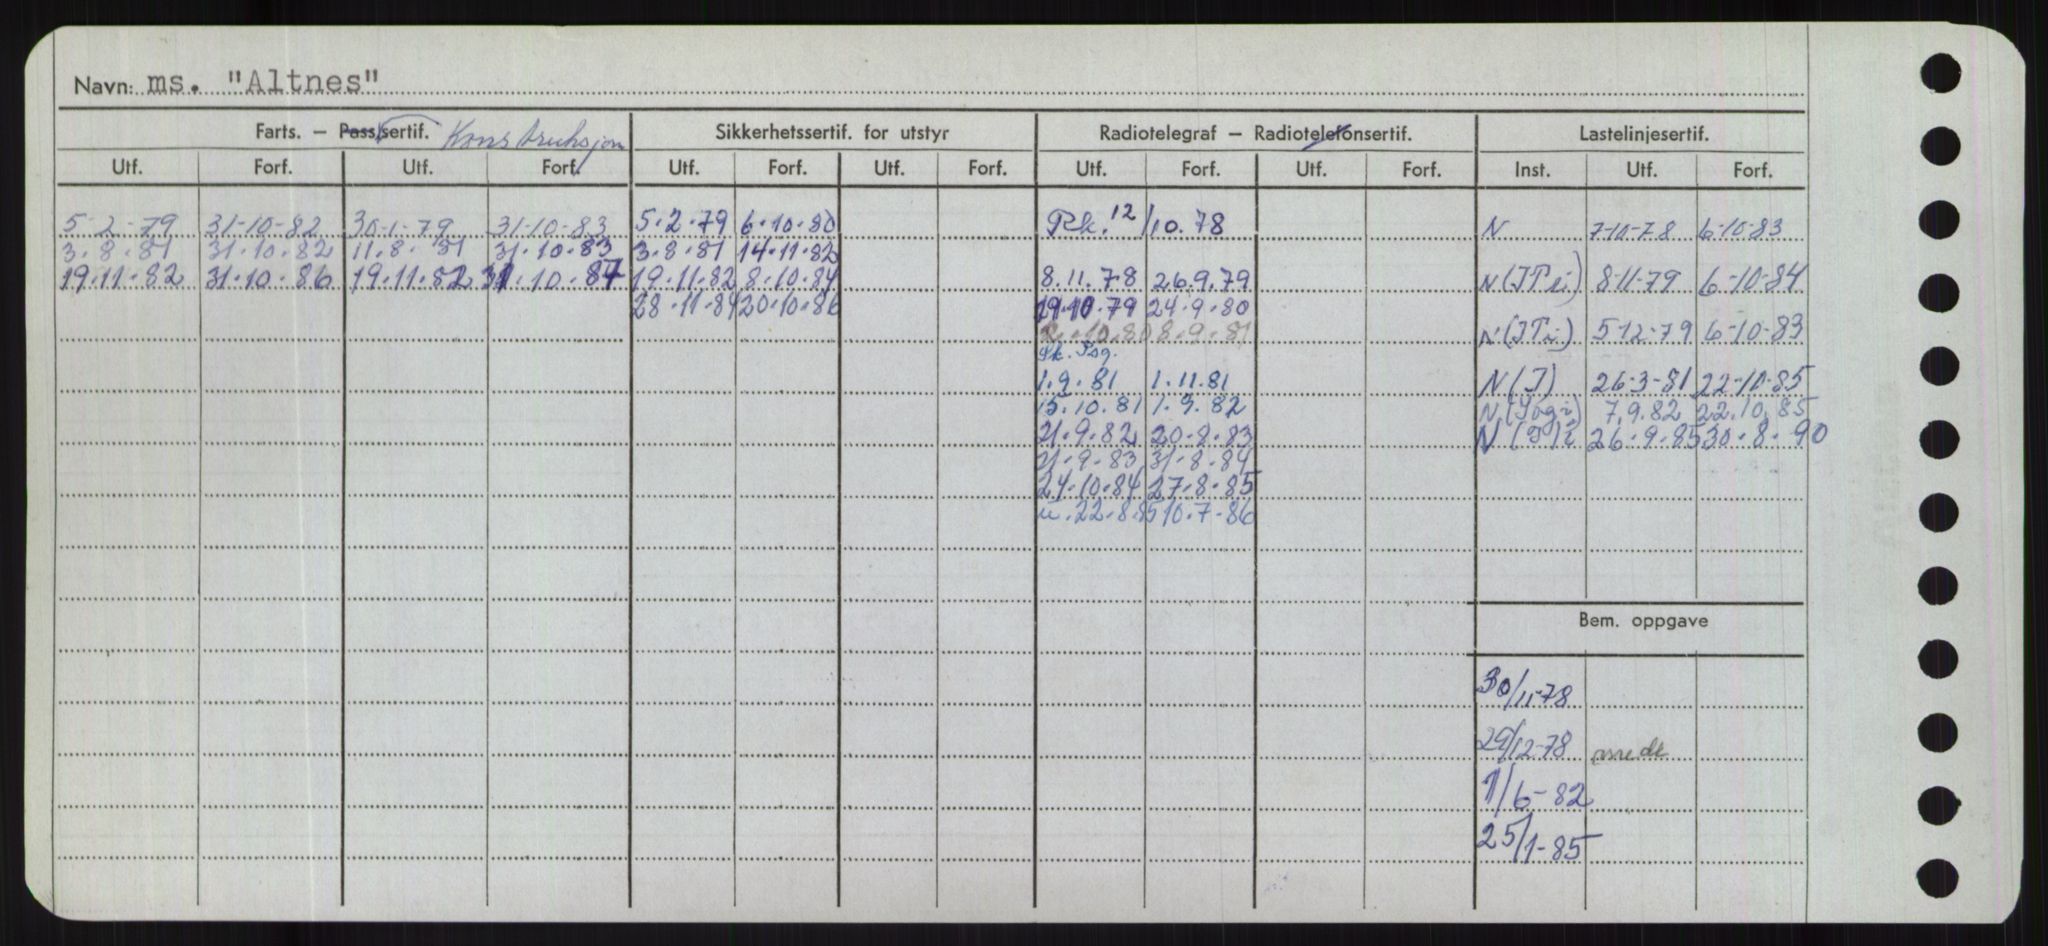 Navn: ms. "Altnes"
Farts. – Pass.sertif. Konstruksjon Sikkerhetssertif. for utstyr Radiotelegraf – Radiotelefonsertif. Lastelinjesertif.
Utf. Forf. Utf. Forf. Utf. Forf. Utf. Forf. Utf. Forf. Utf. Forf. Inst. Utf. Forf.
5-2-79 31-10-82 30-1-79 31-10-83 5.2.79 6.10.80 Pk. 12/10.78 N 7-10-78 6-10-83
3.8.81 31.10.82 11.8.81 31.10.83 3.8.81 14.11.82
19.11.82 31.10.86 19.11.82 31.10.87 19.11.82 8.10.84 8.11.78 26.9.79 N(ITi) 8-11-79 6-10-84
28.11.84 20.10.86 19.10.79 24.9.80
2.10.80 8.9.81 N(ITi) 5-12-79 6-10-83
Pk. Psg.
1.9.81 1.11.81 N(I) 26-3-81 22-10-85
15.10.81 1.9.82 N 7.9.82 22.10.85
21.9.82 20.8.83 N 26.9.85 30.8.90
21.9.83 31.8.84
24.10.84 27.8.85
u.22.8.85 10.7.86
Bem. oppgave
30/11-78
29/12-78
1/6-82
25/1-85